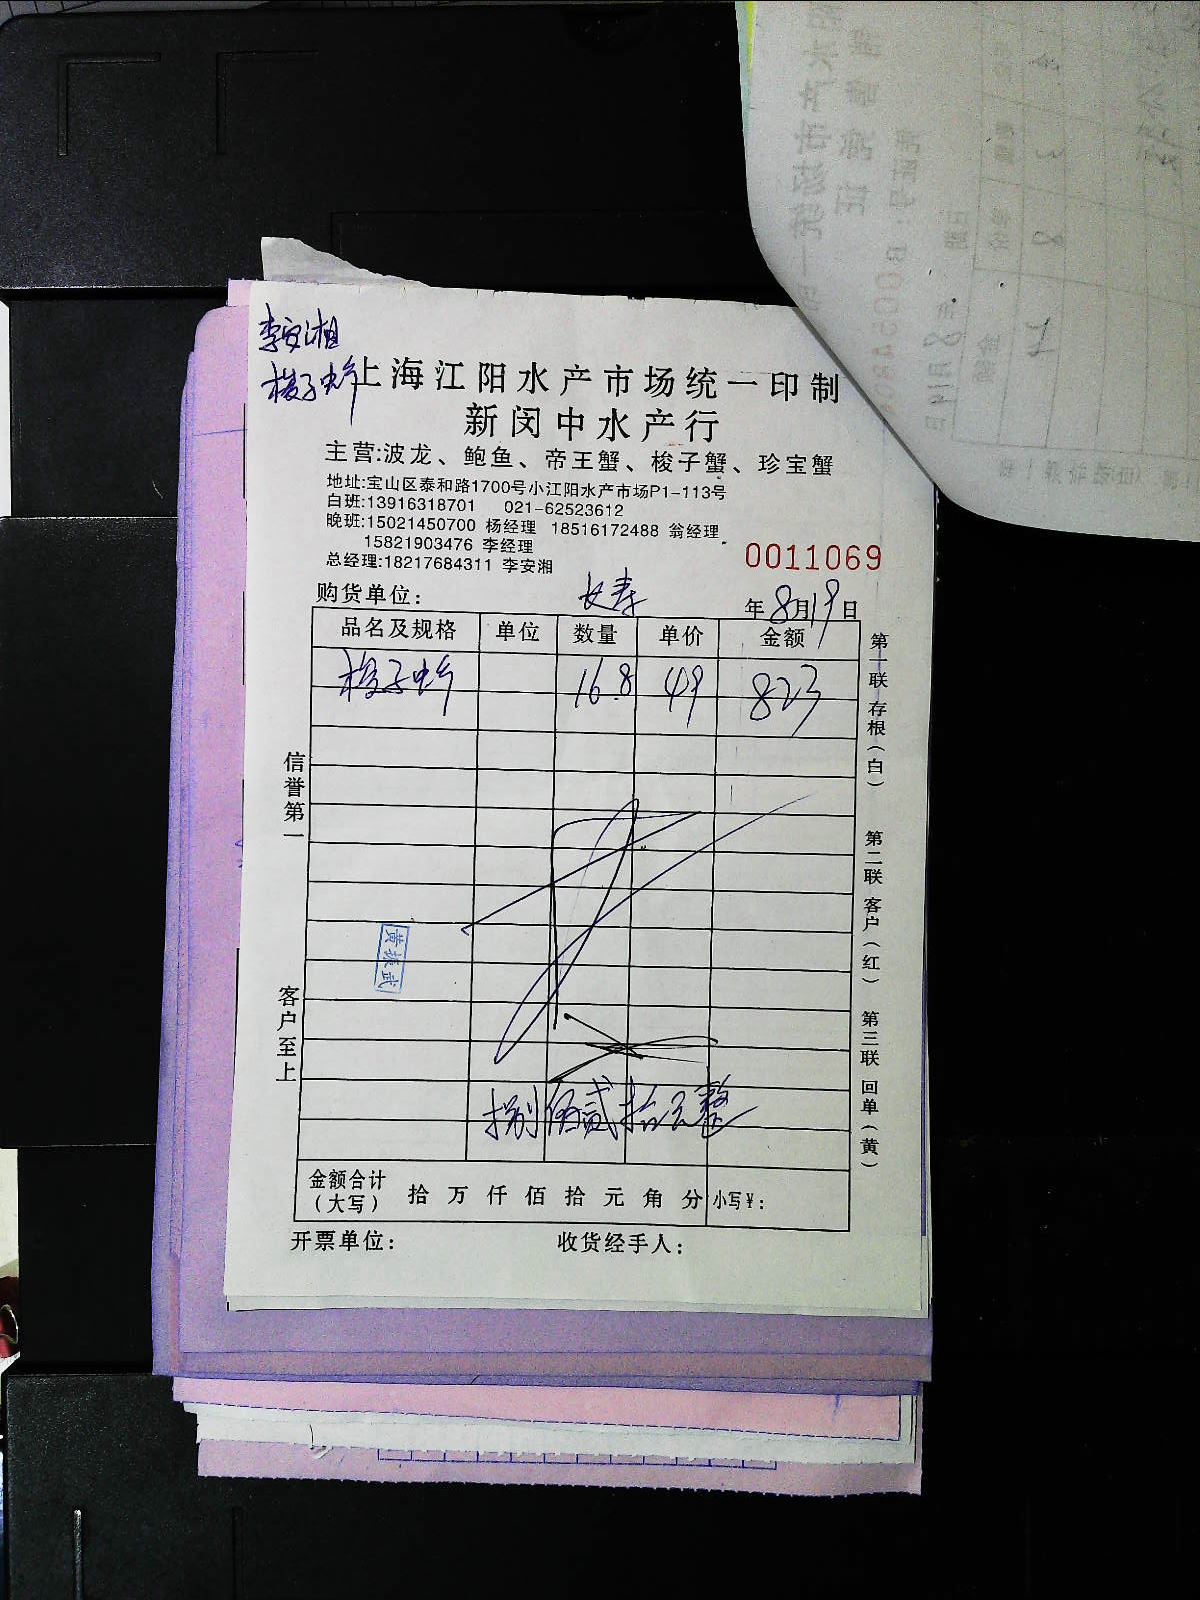 李安湘
梭子虫乡
上海江阳水产市场统一印制
新闵中水产行
主营:波龙、鲍鱼、帝王蟹、梭子蟹、珍宝蟹
地址:宝山区泰和路1700号小江阳水产市场P1-113号
白班:13916318701 021-62523612
晚班:15021450700 杨经理 18516172488 翁经理
15821903476 李经理
总经理:18217684311 李安湘
0011069
购货单位: 长寿 年8月19日
品名及规格 单位 数量 单价 金额
梭子虫乡 16.8 49 823
信誉第一
客户至上
黄振武
第一联 存根(白)
第二联 客户(红)
第三联 回单(黄)
捌佰贰拾元整
金额合计(大写) 拾 万 仟 佰 拾 元 角 分 小写¥:
开票单位: 收货经手人: